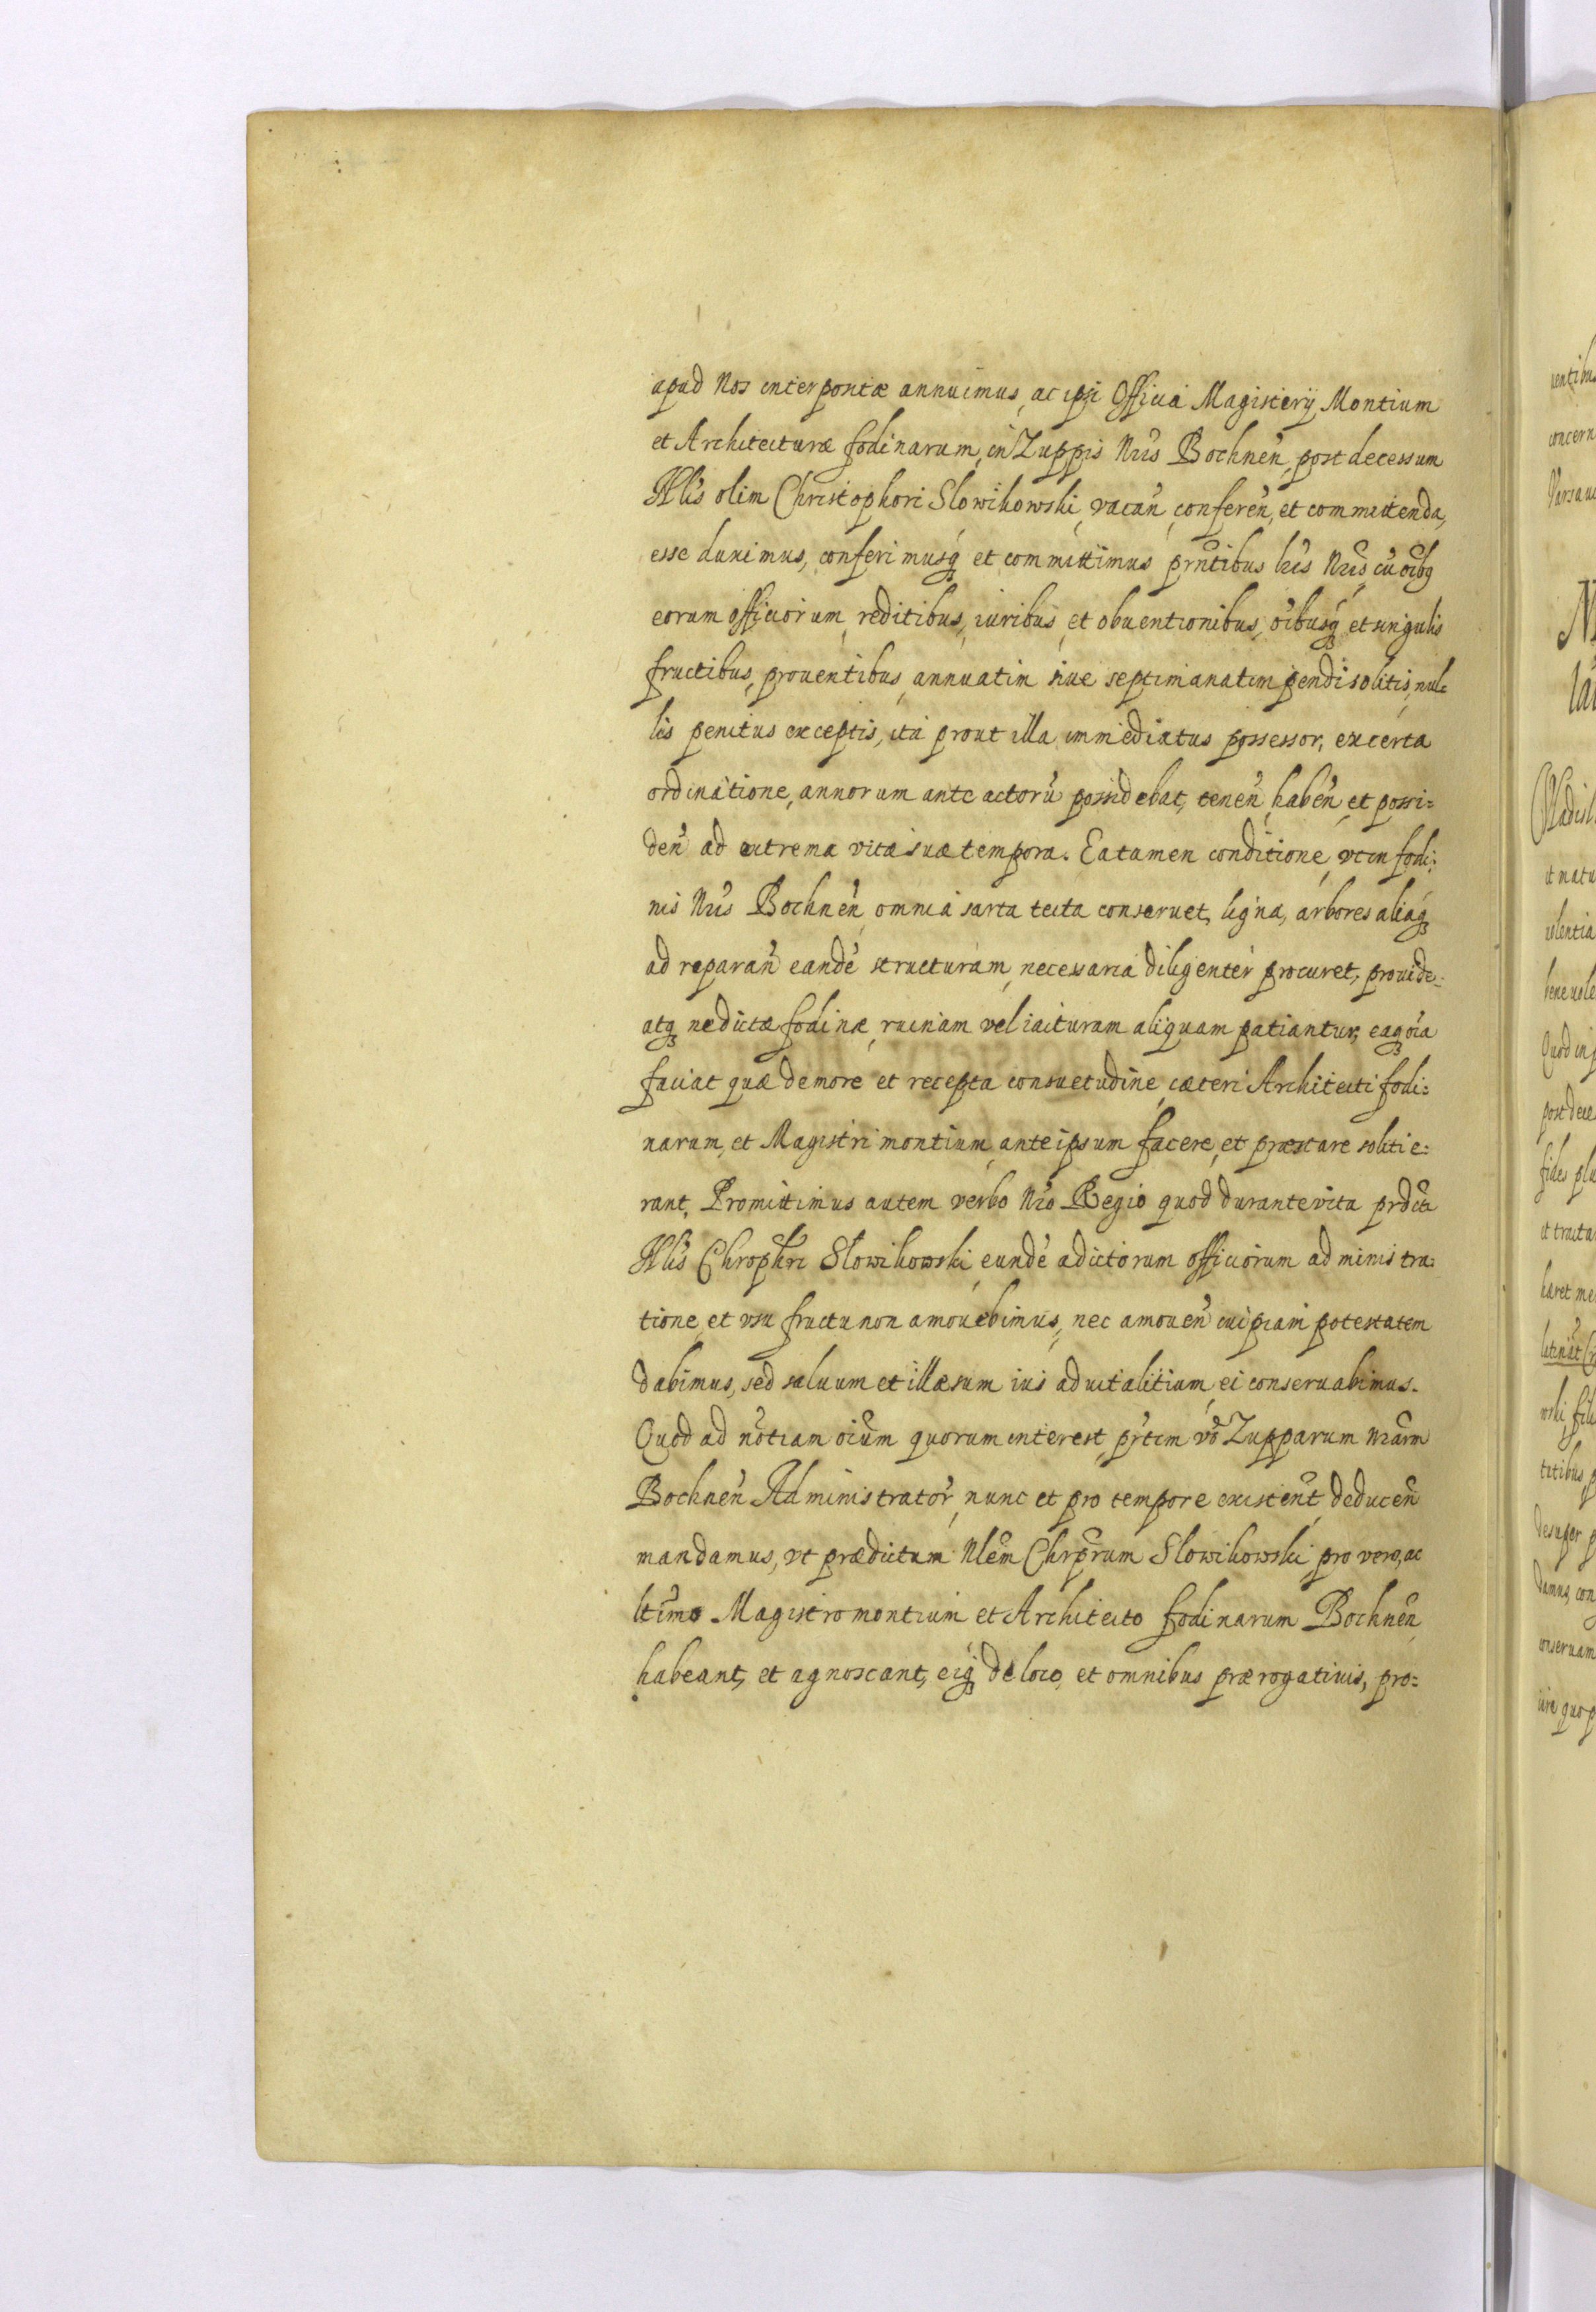 apud Nos interpositæ annuimus, ac ipsi Officia Magisterij Montium
et Architecturæ fodinarum, in Zuppis Nris Bochnen̄, post decessum
Nlis olim Christophori Slowikowski, vacan̄, conferen̄, et committenda,
esse duximus, conferimusq́ et committimus prntibus lris Nris, cū oibꝯ
eorum officiorum, reditibus, iuribus, et obuentionibus, oibusq́, et singulis
fructibus, prouentibus, annuatim siue septimanatim pendi solitis, nul=
lis penitus exceptis, ita prout illa immediatus possessor, ex certa
ordinatione, annorum ante actorū possidebat, tenen̄, haben̄, et possi=
den̄ ad extrema vitæ suæ tempora. Ea tamen conditione, vt in fodi:
nis Nris Bochnen̄, omnia sarta tecta conseruet, ligna, arbores aliaq́
ad reparan̄ eandē structuram, necessaria diligenter procuret, prouide-
atq́ ne dictæ fodinæ, ruinam vel iacturam aliquam patiantur, eaq́ oia
faciat quæ de more et recepta consuetudine, cæteri Architecti fodi:
narum, et Magistri montium, ante ipsum facere, et præstare soliti e:
rant, Promittimus autem verbo Nro Regio quod durante vita prdcti
Nlis Chrophri Słowikowski, eundē a dictorum officiorum administra:
tione, et vsu fructu non amouebimus, nec amouen̄ cuipiam potestatem
dabimus, sed saluum et illæsum ius aduitalitium, ei conseruabimus.
Quod ad notiam oium quorum interest, prtim vo Zupparum Nrarm
Bochnen̄ Administrator, nunc et pro tempore existent, deducen̄
mandamus, vt prædictum Nlem Chrprum Slowikowski, pro vero, ac
ltimo Magistro montium et Architecto fodinarum Bochnen̄,
habeant, et agnoscant, eiq́ de loco, et omnibus prærogatiuis, pro: